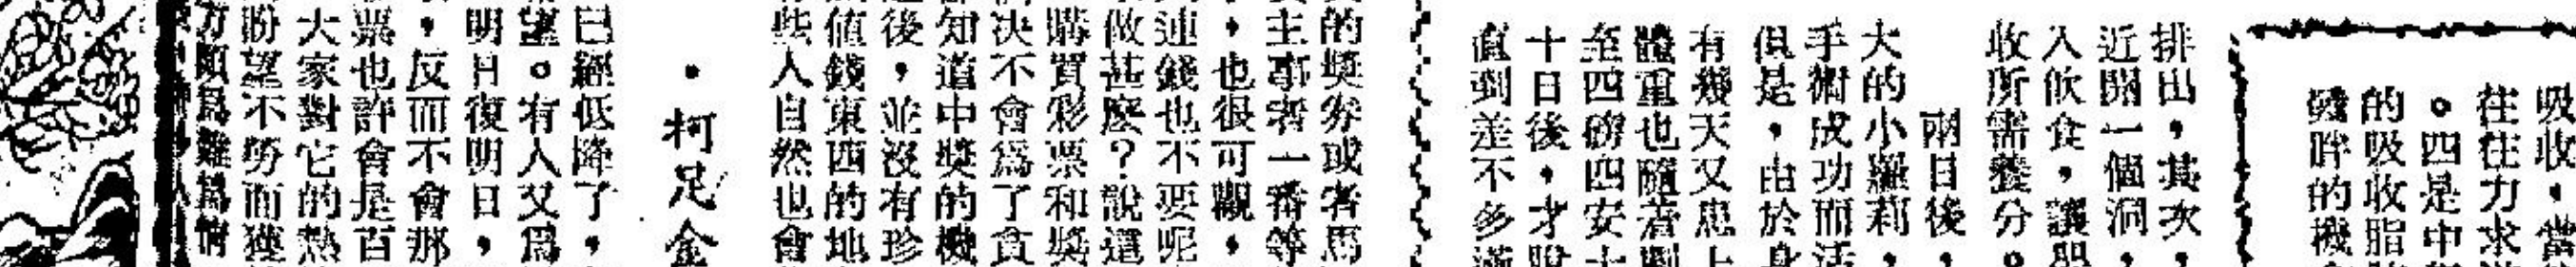 吸收,當
往往力求
。四是中
的吸收脂
胖的機
排出,其次,
近開一個洞,
入飲食,讓
收所需養分。
兩日後,
大的小羅莉,
手術成功而活
但是,由於身
有幾天又患上
體重也隨著
至四磅四安士
十日後,才
直到差不多
的獎券或者馬
主事者一番等
,也很可觀,
連錢也不要呢
做甚麼?說這
購買彩票和獎
決不會爲了貪
知道中獎的機
後,並沒有珍
值錢東西的地
些人自然也會
·柯足金
已經低降了,
望。有人又爲
明日復明日,
,反而不會那
票也許會是百
大家對它的熱
盼望不勞而獲
方頗爲難爲情